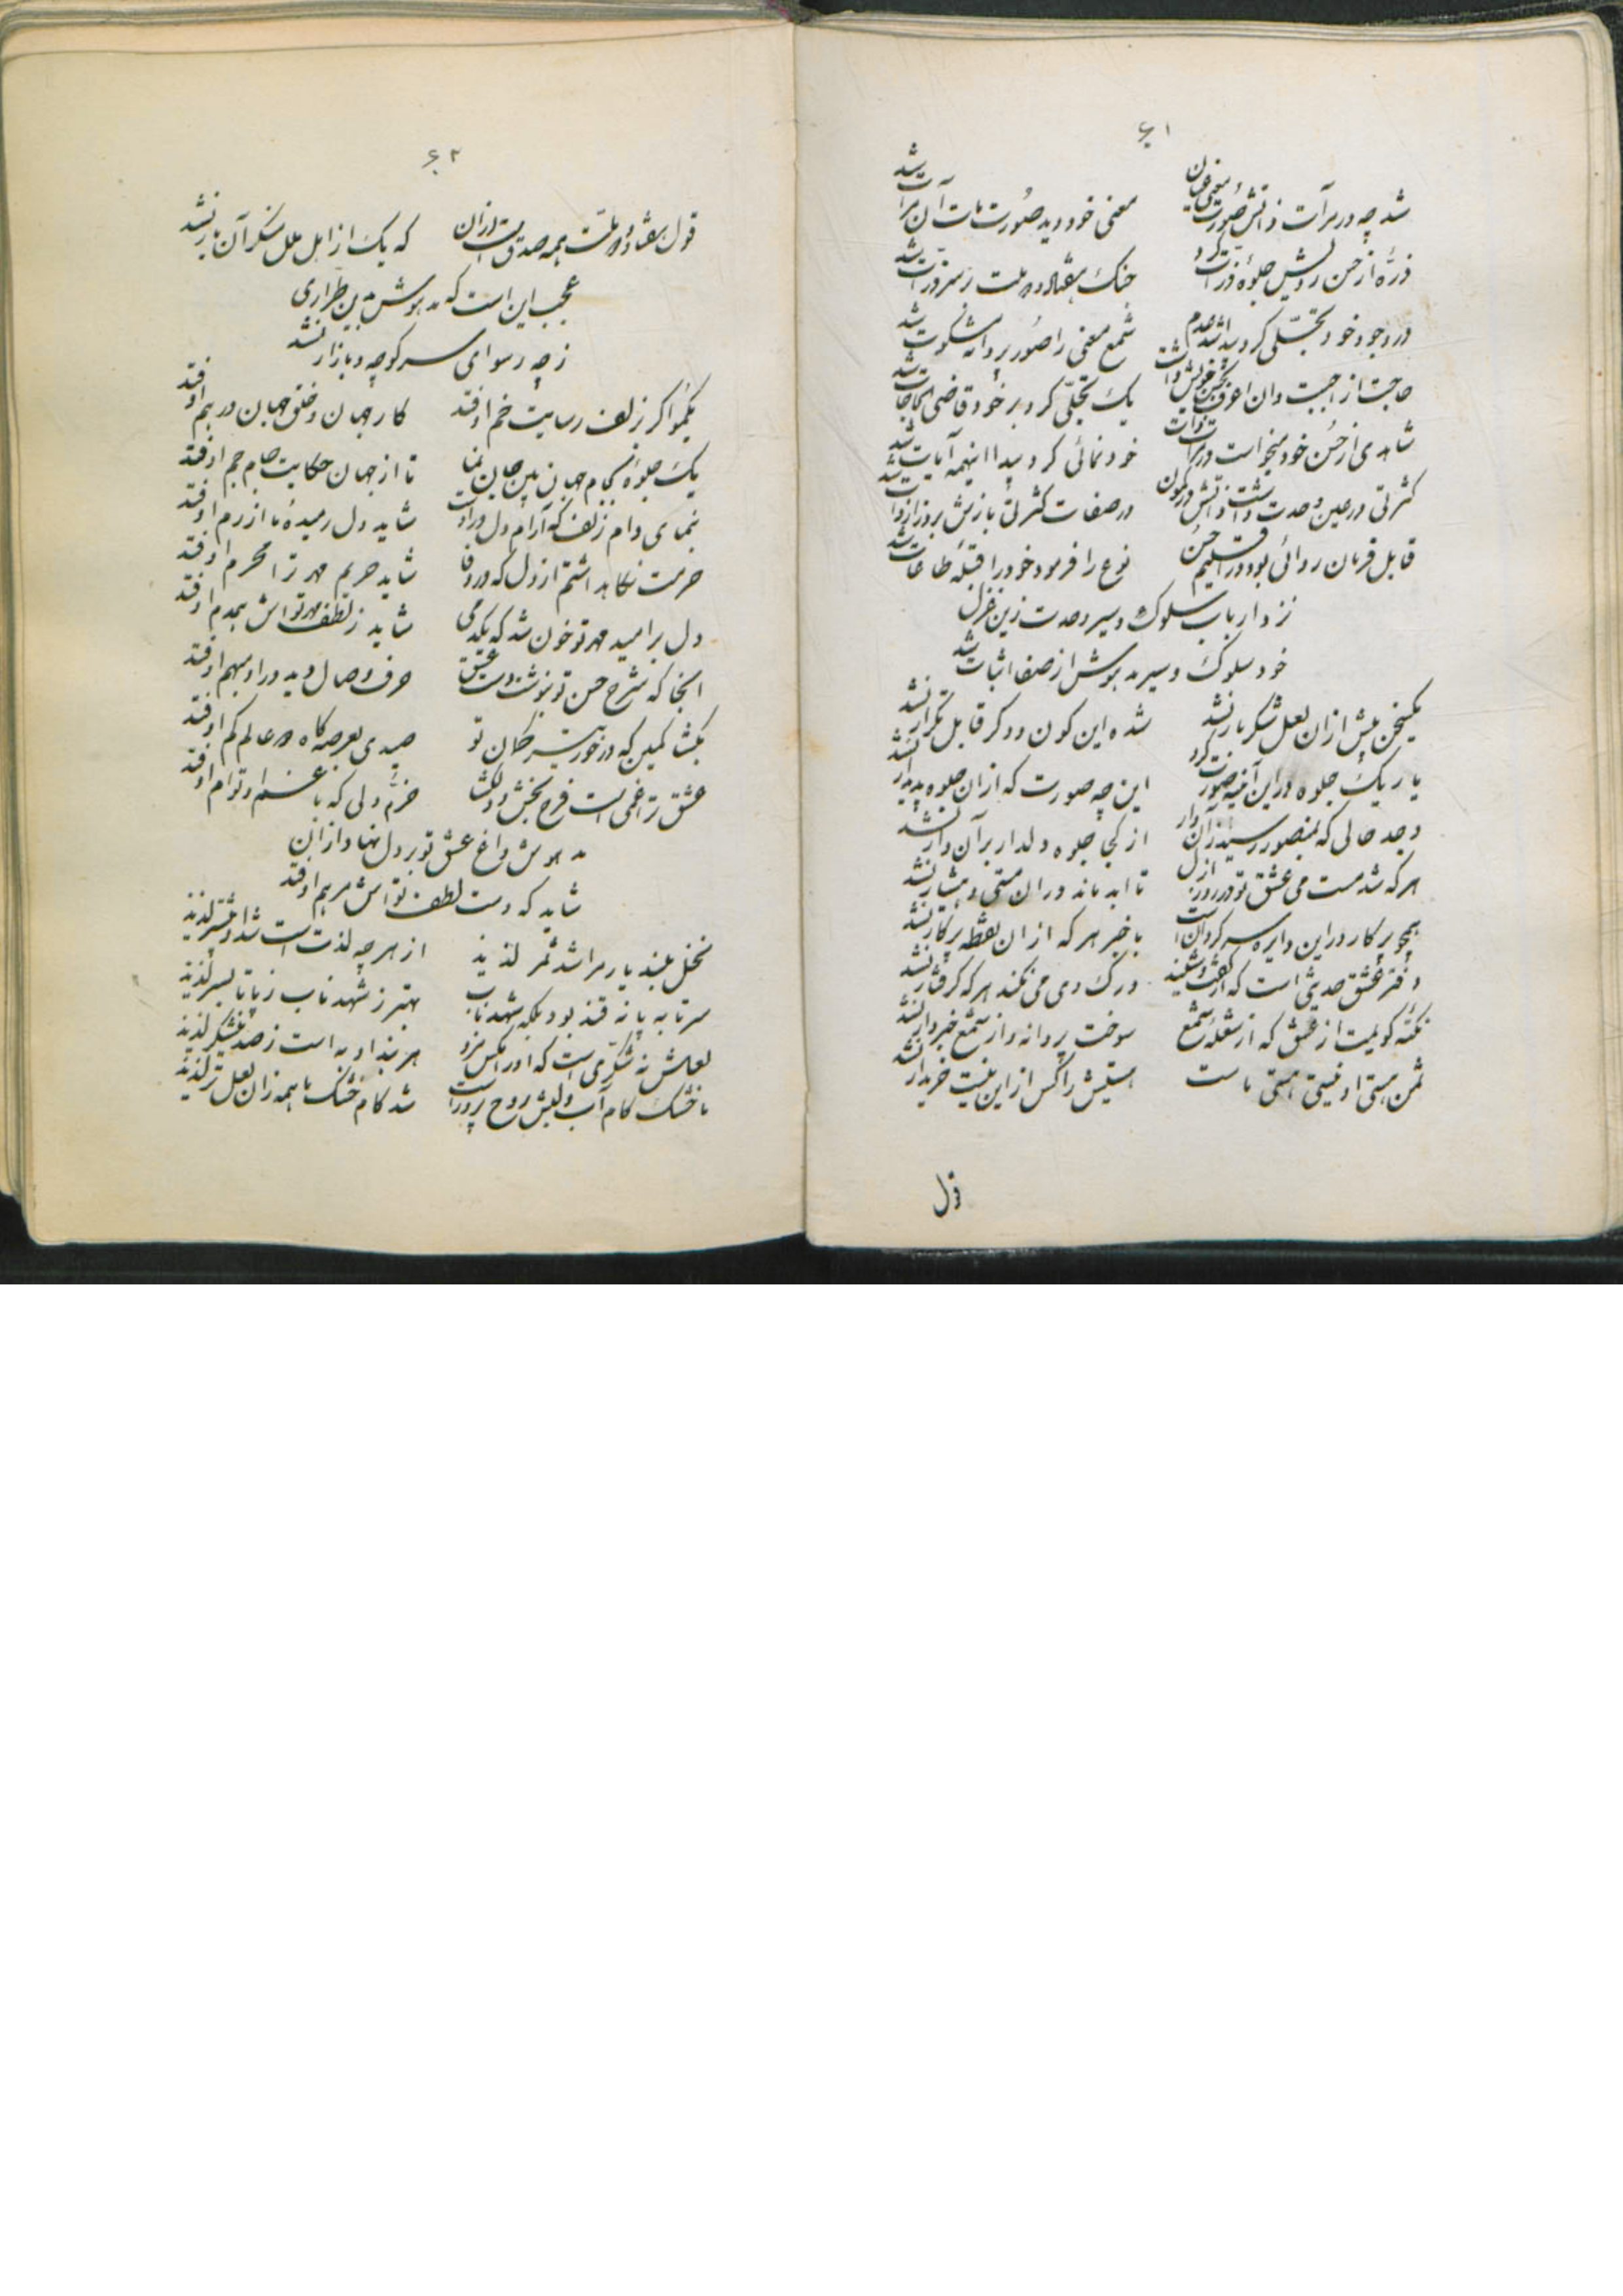 ۶۱
شد چه در مرآت ذاتش صورت معنی عیان
معنی خود دید صورت مات آن مرآت شد
ذرهٔ از حسن رویش جلوهٔ ذرات کرد
جنگ هفتاد و دو ملت زسر ذرات شد
در وجود خود تجلی کرد پیدا شد عدم
شمع معنی را صور پروانه مشکوت شد
یک تجلی کرد بر خود قاضی الحاجات شد
شاهدی از حسن خود میخواست در مرآت ذات
خودنمائی کرد پیدا اینهمه آیات شد
کثرتی در عین وحدت داشت ذاتش در کمون
در صفات کثرتی بازش بروز از ذات شد
قابل فرمان روائی بود در اقلیم حسن
نوع را فرمود خود را قبلهٔ طاعات شد
نزد ارباب سلوک و سیر وحدت زین غزل
خود سلوک و سیر مدهوش از صفا اثبات شد
یکسخن بیش از آن لعل شکربار نشد
شده این کون و دگر قابل تکرار نشد
یار یک جلوه در این آینه صورت کرد
این چه صورت که از آن جلوه پدیدار نشد
وجد حالی که بمنصور رسید از آن دار
از کجا جلوه دلدار بر آن دار نشد
هر که شد مست می عشق تو در روز ازل
تا ابد ماند در آن مستی و هشیار نشد
همچو پرگار در این دایره سرگردانست
باخبر هر که از آن نقطه پرگار نشد
دفتر عشق حدیثی است که از گفت و شنید
درک وی می نکند هر که گرفتار نشد
نکته گویمت از عشق که از شعلهٔ شمع
سوخت پروانه و از شمع خبردار نشد
ثمن هستی او نیستی هستی ماست
هستیش را کس از این نیست خریدار نشد
قول
۶۲
قول هفتاد و دو ملت همه صدق است در آن
که یک از اهل ملل منکر آن یار نشد
عجب این است که مدهوش بدین طراری
ز چه رسوای سر کوچه و بازار نشد
یکمو اگر ز زلف رسایت خم اوفتد
کار جهان و خلق جهان درهم اوفتد
یک جلوه کن بجام جهان بین جهان نما
تا از جهان حکایت جام جم اوفتد
بنمای دام زلف که آرام دل در اوست
شاید دل رمیدهٔ ما از رم اوفتد
حرمت نگاه داشتم از دل که در وفا
شاید حریم مهر ترا محرم اوفتد
دل بر امید مهر تو خون شد که یکدمی
شاید ز لطف مهر تواش همدم اوفتد
آنجا که شرح حسن تو بنوشت دست عشق
حرف وصال دید در او مبهم اوفتد
بگشا کمین که در خور تیر کمان تو
صیدی بعرصه گاه در عالم کم اوفتد
عشق تو غمی است فرح بخش و دلگشا
خرم دلی که با غم او توام اوفتد
مدهوش داغ عشق تو بر دل نهاد از آن
شاید که دست لطف تواش مرهم اوفتد
نخل بلند یار مرا شد ثمر لذیذ
از هر چه لذت است شد او بیشتر لذیذ
سر تا به پا نه قند بود بلکه شهد ناب
بهتر ز شهد ناب ز پا تا بسر لذیذ
لعلش نه شکری است که او را مگس مزد
هر بند او به است ز صد نیشکر لذیذ
ما خشک کام آب و لبش روح پرور است
شد کام خشک ما همه زان لعل تر لذیذ